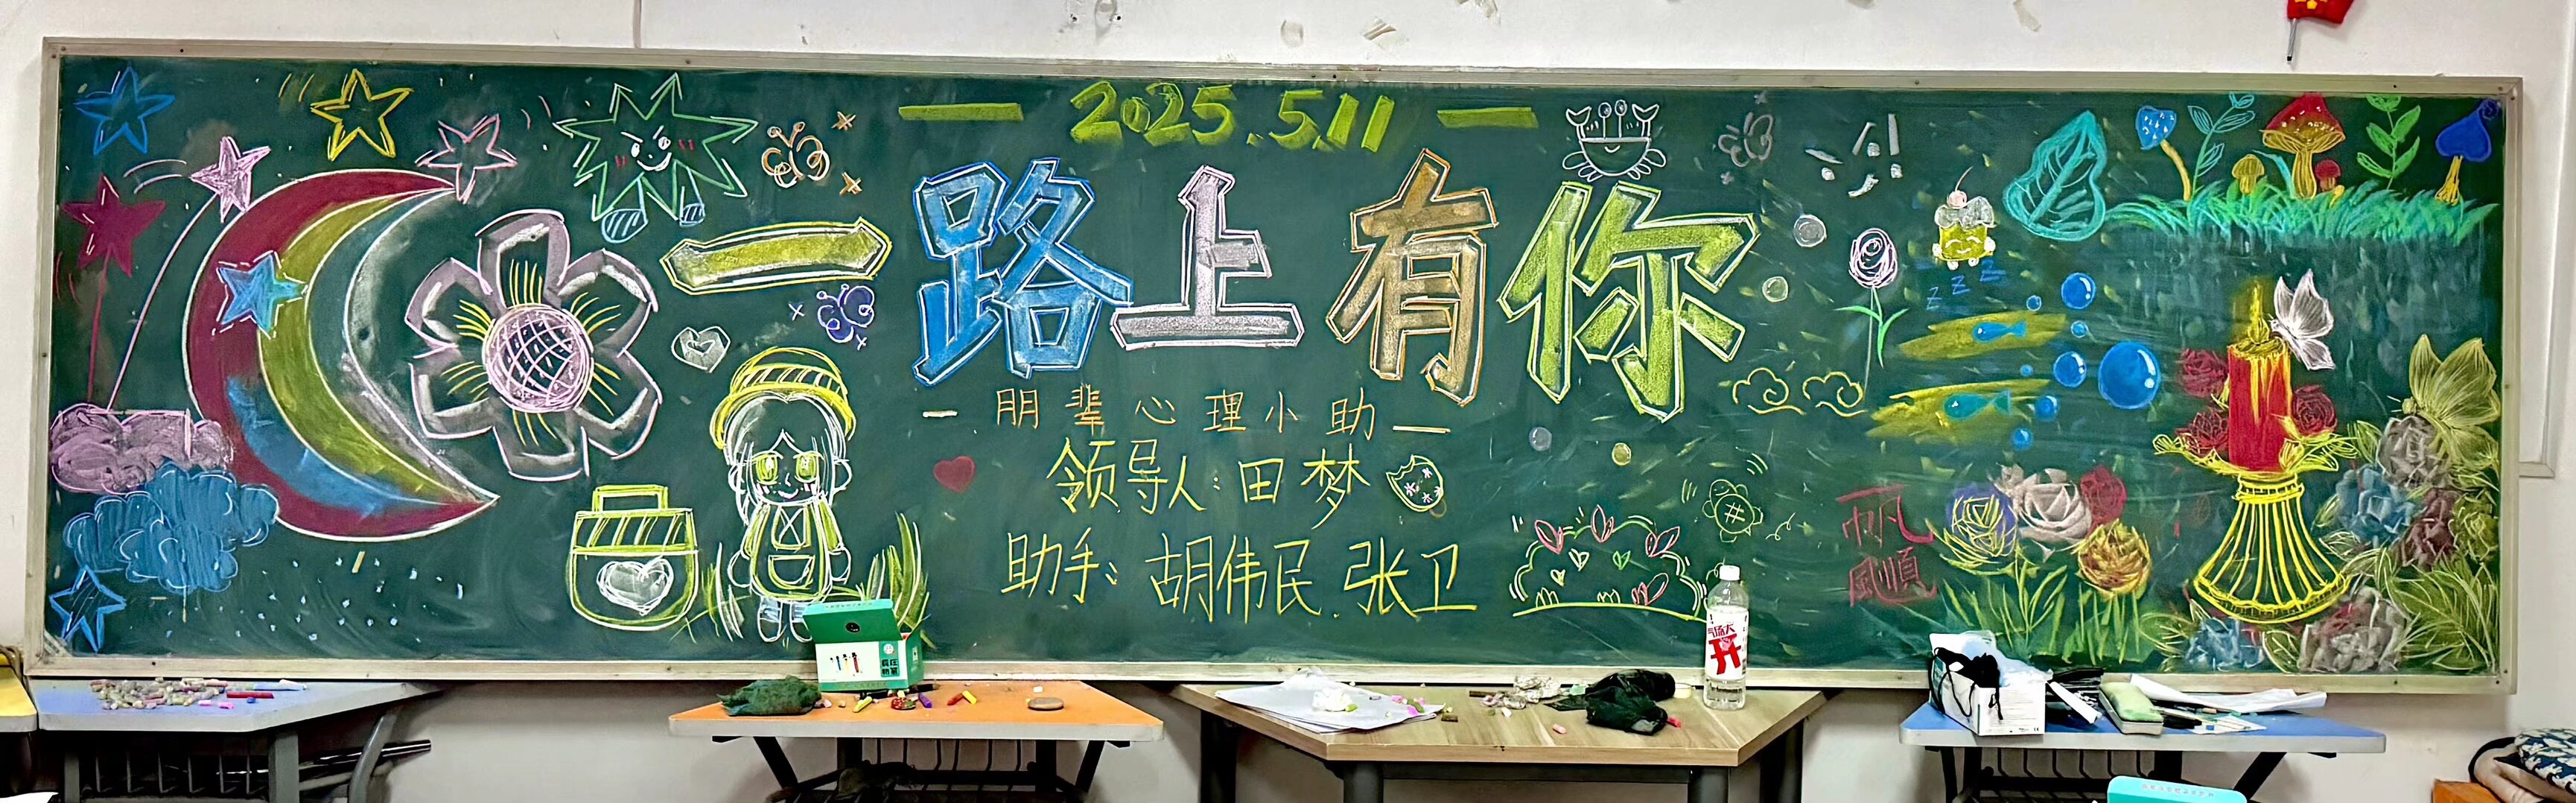 — 2025.5.11 —
一路上有你
— 朋辈心理小助 —
领导人：田梦
助手：胡伟民 张卫
z z z
气泡大
开